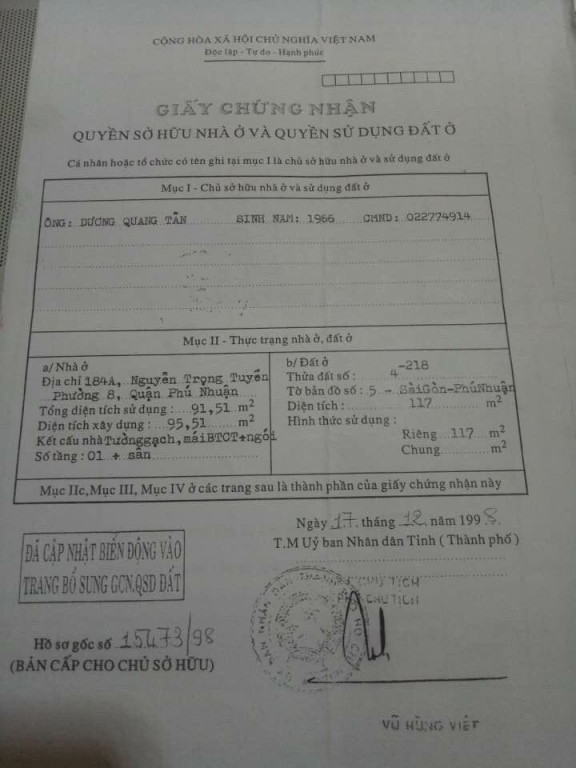 CỘNG HÒA XÃ HỘI CHỦ NGHĨA VIỆT NAM
Độc lập - Tự do - Hạnh phúc
GIẤY CHỨNG NHẬN
QUYỀN SỞ HỮU NHÀ Ở VÀ QUYỀN SỬ DỤNG ĐẤT Ở
Cá nhân hoặc tổ chức có tên ghi tại mục I là chủ sở hữu nhà ở và sử dụng đất ở
Mục I - Chủ sở hữu nhà ở và sử dụng đất ở
ÔNG: DƯƠNG QUANG TẤN SINH NĂM: 1966 CMND: 022774914
Mục II - Thực trạng nhà ở, đất ở
a/ Nhà ở
Địa chỉ 184A, Nguyễn Trọng Tuyển
Phường 8, Quận Phú Nhuận
Tổng diện tích sử dụng: 91,51 m²
Diện tích xây dựng: 95,51 m²
Kết cấu nhà Tường gạch, mái BTCT+ngói
Số tầng: 01 + sân
b/ Đất ở
Thửa đất số: 4-218
Tờ bản đồ số: 5 - SàiGòn-PhúNhuận
Diện tích: 117 m²
Hình thức sử dụng:
Riêng 117 m²
Chung m²
Mục IIc, Mục III, Mục IV ở các trang sau là thành phần của giấy chứng nhận này
Ngày 17 tháng 12 năm 1998
T.M Uỷ ban Nhân dân Tỉnh (Thành phố)
CHỦ TỊCH
CHỦ TỊCH
ĐÃ CẬP NHẬT BIẾN ĐỘNG VÀO
TRANG BỔ SUNG GCN,QSD ĐẤT
Hồ sơ gốc số 15473/98
(BẢN CẤP CHO CHỦ SỞ HỮU)
VŨ HÙNG VIỆT